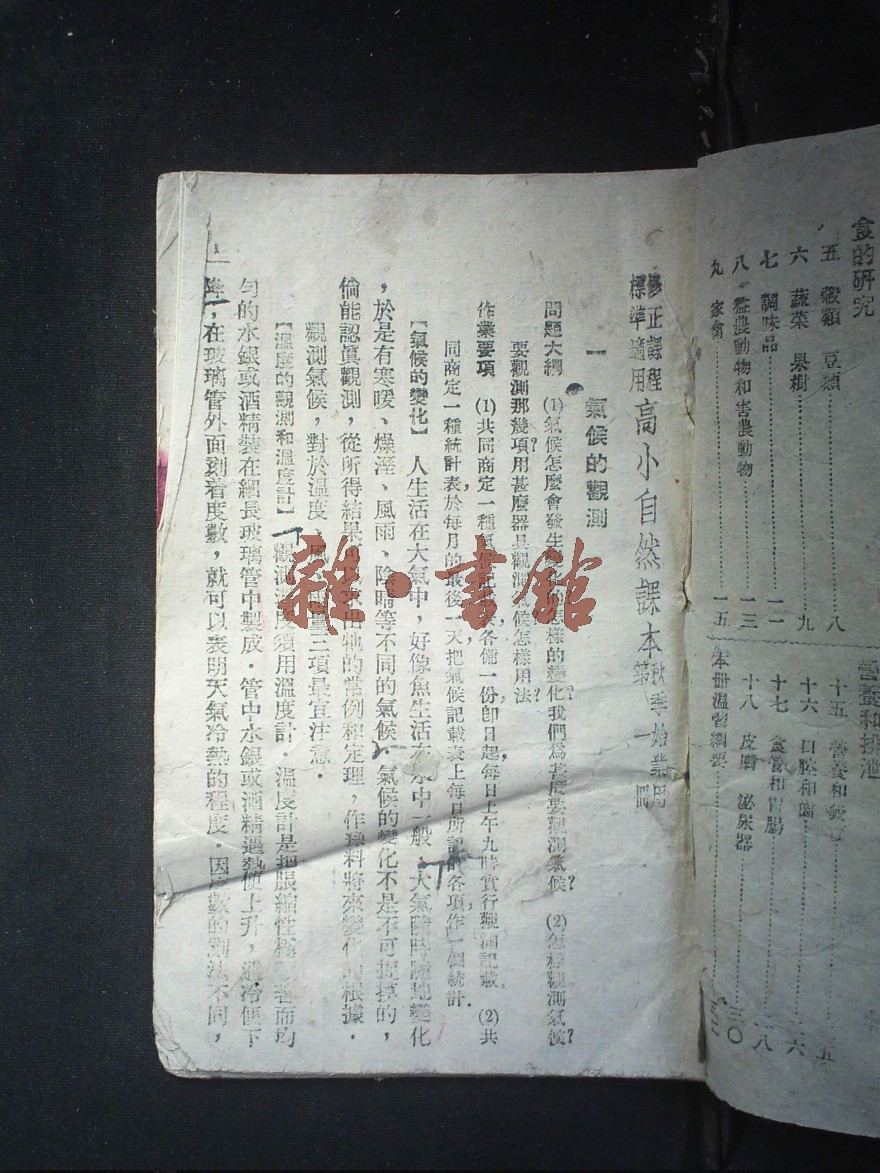 食的研究
五 穀類 豆類 八
六 蔬菜 果樹 九
七 調味品 一一
八 益農動物和害農動物 一三
九 家禽 一五
營養和排泄
十五 營養和
十六 口腔和齒 二六
十七 食管和胃腸 二八
十八 皮膚 泌尿器 三〇
本册溫習綱要
修正課程標準適用 高小自然課本 秋季始業用 第一冊
一 氣候的觀測
問題大綱 (1)氣候怎麼會發生變化?怎樣的變化?我們爲甚麼要觀測氣候? (2)怎樣觀測氣候?
要觀測那幾項?用甚麼器具觀測氣候?怎樣用法?
作業要項 (1)共同商定一種氣候記載表,各備一份,卽日起,每日上午九時實行觀測記載。(2)共
同商定一種統計表,於每月的最後一天,把氣候記載表上每日所記的各項,作一個統計.
【氣候的變化】 人生活在大氣中,好像魚生活在水中一般.大氣隨時隨地變化
,於是有寒暖、燥溼、風雨、陰晴等不同的氣候.氣候的變化不是不可捉摸的,
倘能認眞觀測,從所得結果可以求出牠的常例和定理,作預料將來變化的根據.
觀測氣候,對於溫度、風、雨量三項最宜注意.
【溫度的觀測和溫度計】 觀測溫度須用溫度計.溫度計是把脹縮性極顯著而均
勻的水銀或酒精裝在細長玻璃管中製成.管中水銀或酒精遇熱便上升,遇冷便下
降,在玻璃管外面刻着度數,就可以表明天氣冷熱的程度.因度數的刻法不同,
一
雜·書館